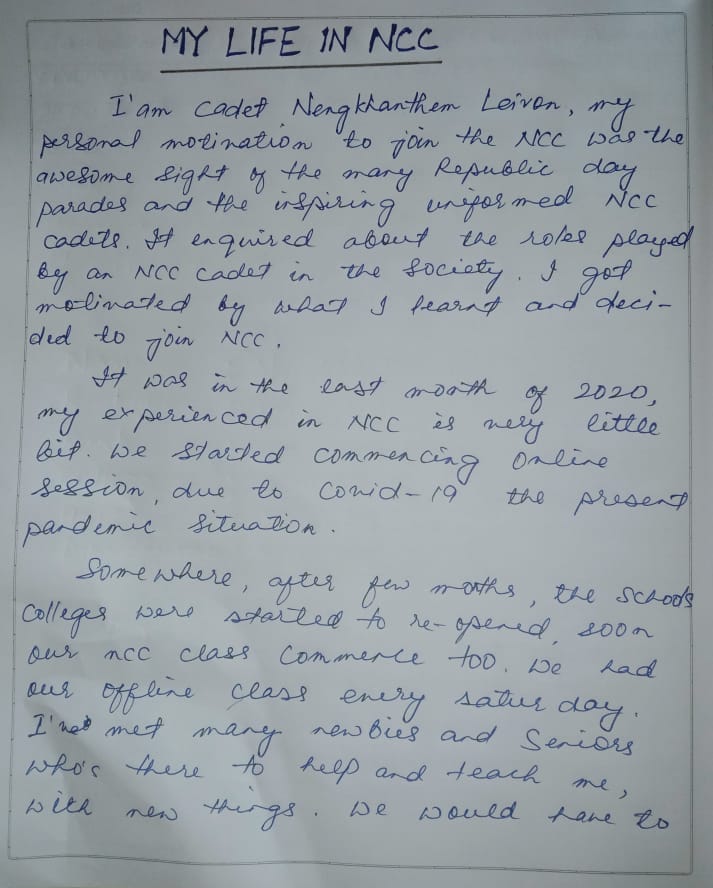 MY LIFE IN NCC
I'am cadet Nengkhanthem Leivon, my
personal motivation to join the NCC was the
awesome sight of the many Republic day
parades and the inspiring uniformed NCC
cadets. It enquired about the roles played
by an NCC cadet in the society. I got
motivated by what I learnt and deci-
ded to join NCC.
It was in the last month of 2020,
my experienced in NCC is very little
bit. We started commencing online
session, due to Covid-19 the present
pandemic situation.
Somewhere, after few months, the schools
colleges were started to re-opened, soon
our ncc class commence too. We had
our offline class every saturday.
I've met many newbies and Seniors
who's there to help and teach me,
with new things. We would have to